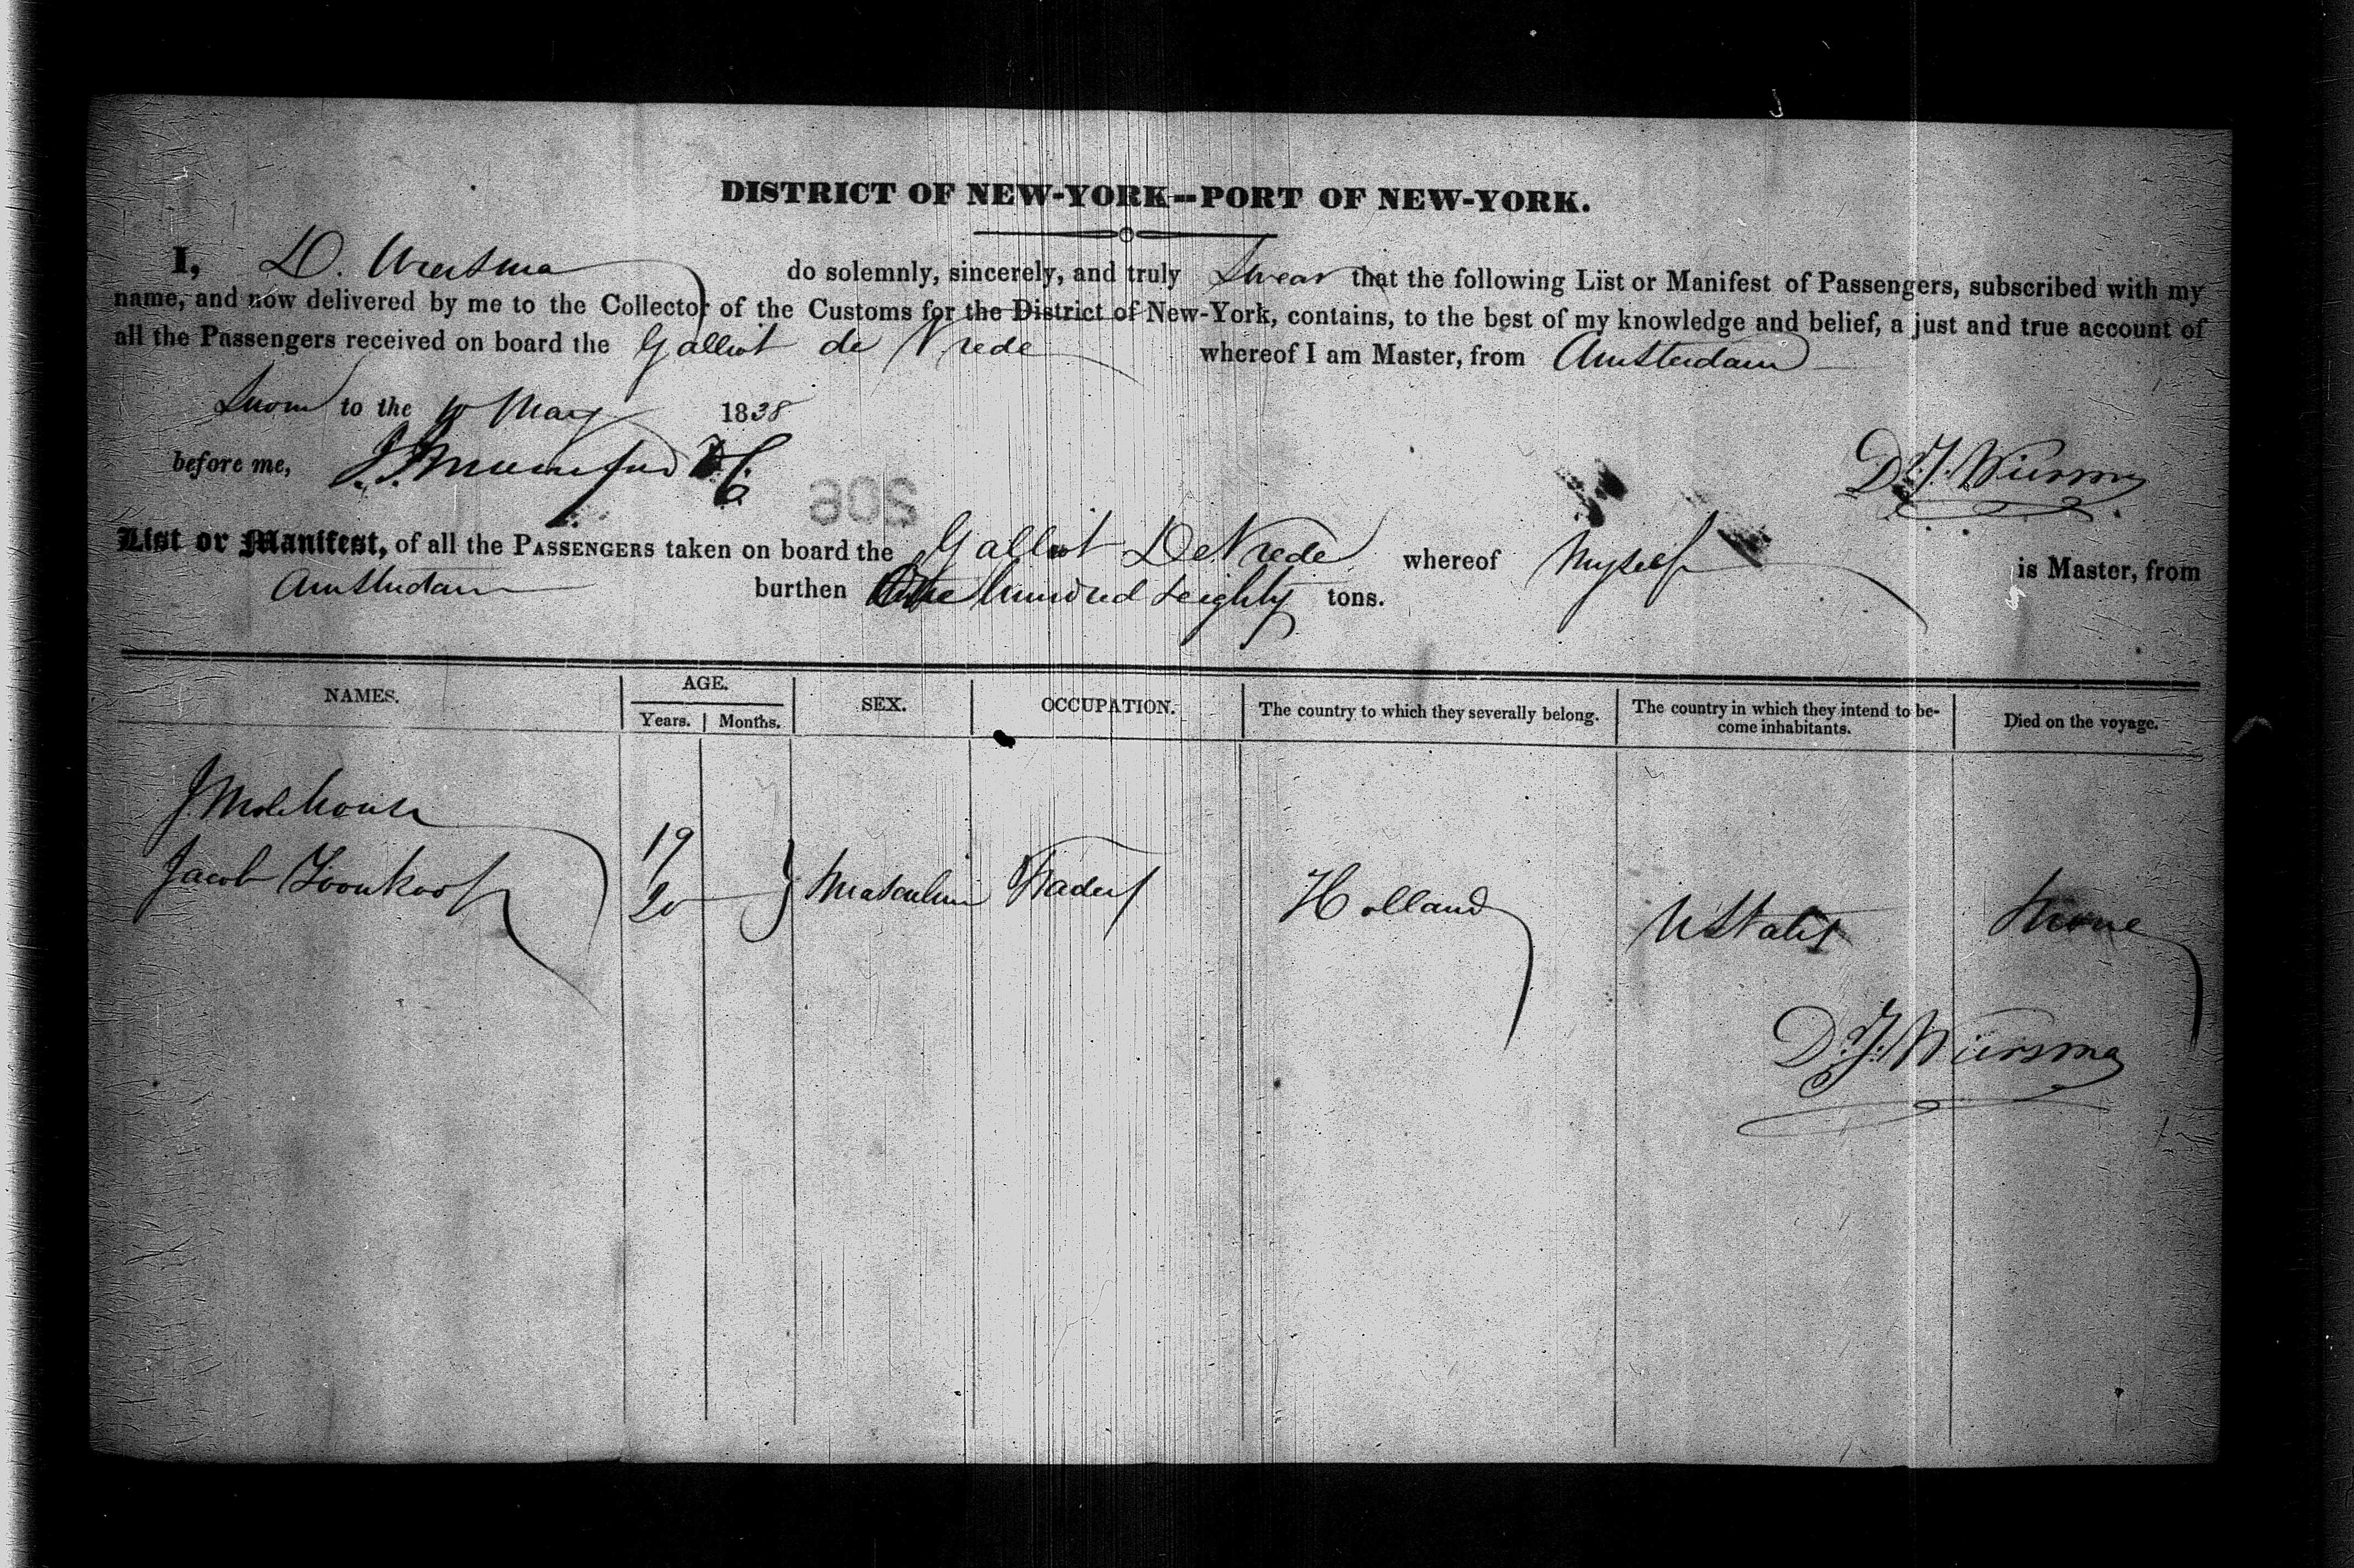 DISTRICT OF NEW-YORK--PORT OF NEW-YORK.
I, D. Wiersma do solemnly, sincerely, and truly Swear that the following List or Manifest of Passengers, subscribed with my
name, and now delivered by me to the Collector of the Customs for the District of New-York, contains, to the best of my knowledge and belief, a just and true account of
all the Passengers received on board the Galliot de Vrede whereof I am Master, from Amsterdam
Sworn to the 10 May 1838
before me,
D. J. Wiersma
206
List or Manifest, of all the PASSENGERS taken on board the Galliot De Vrede whereof Myself is Master, from
Amsterdam burthen One hundred & eighty tons.
NAMES. AGE. Years. Months. SEX. OCCUPATION. The country to which they severally belong. The country in which they intend to become inhabitants. Died on the voyage.
J 19
Jacob 20 Masculin Traders Holland U States None
D. J. Wiersma